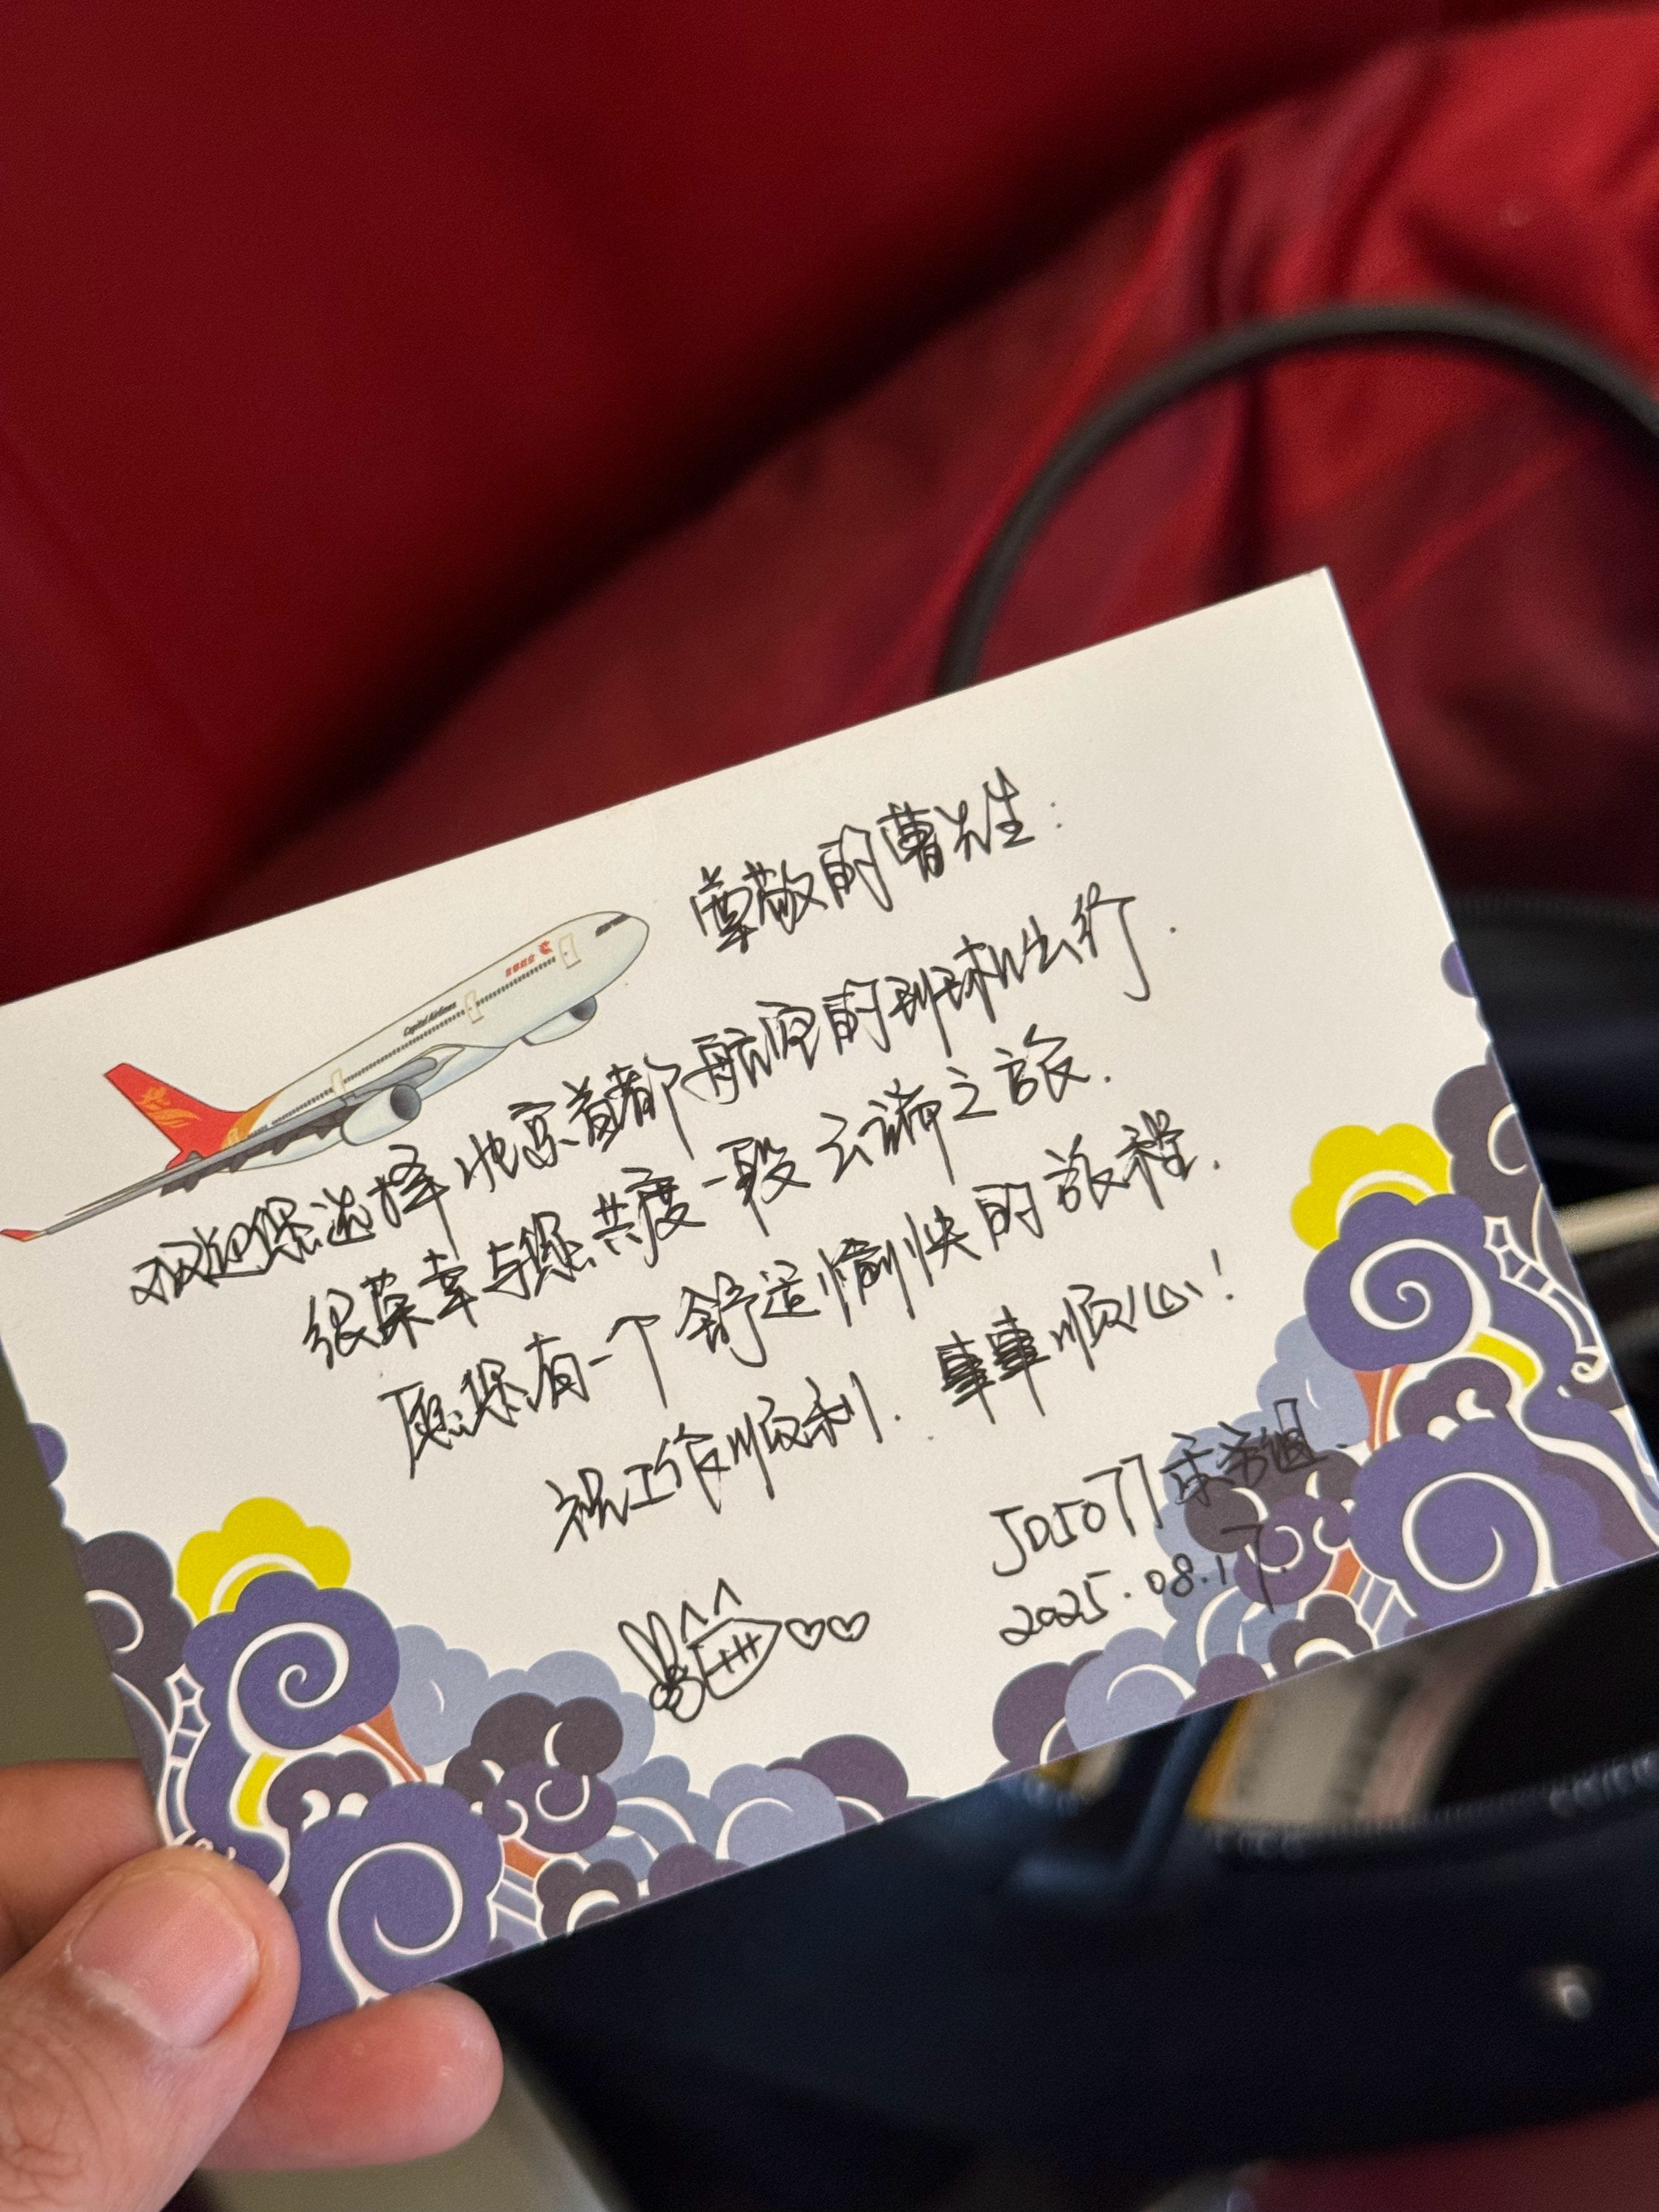 尊敬的曹先生：
首都航空
Capital Airlines
欢迎您选择北京首都航空的班机出行.
很荣幸与您共度一段云端之旅.
愿您有一个舒适愉快的旅程.
祝工作顺利. 事事顺心！
JD5077乘务组.
2025.08.17.